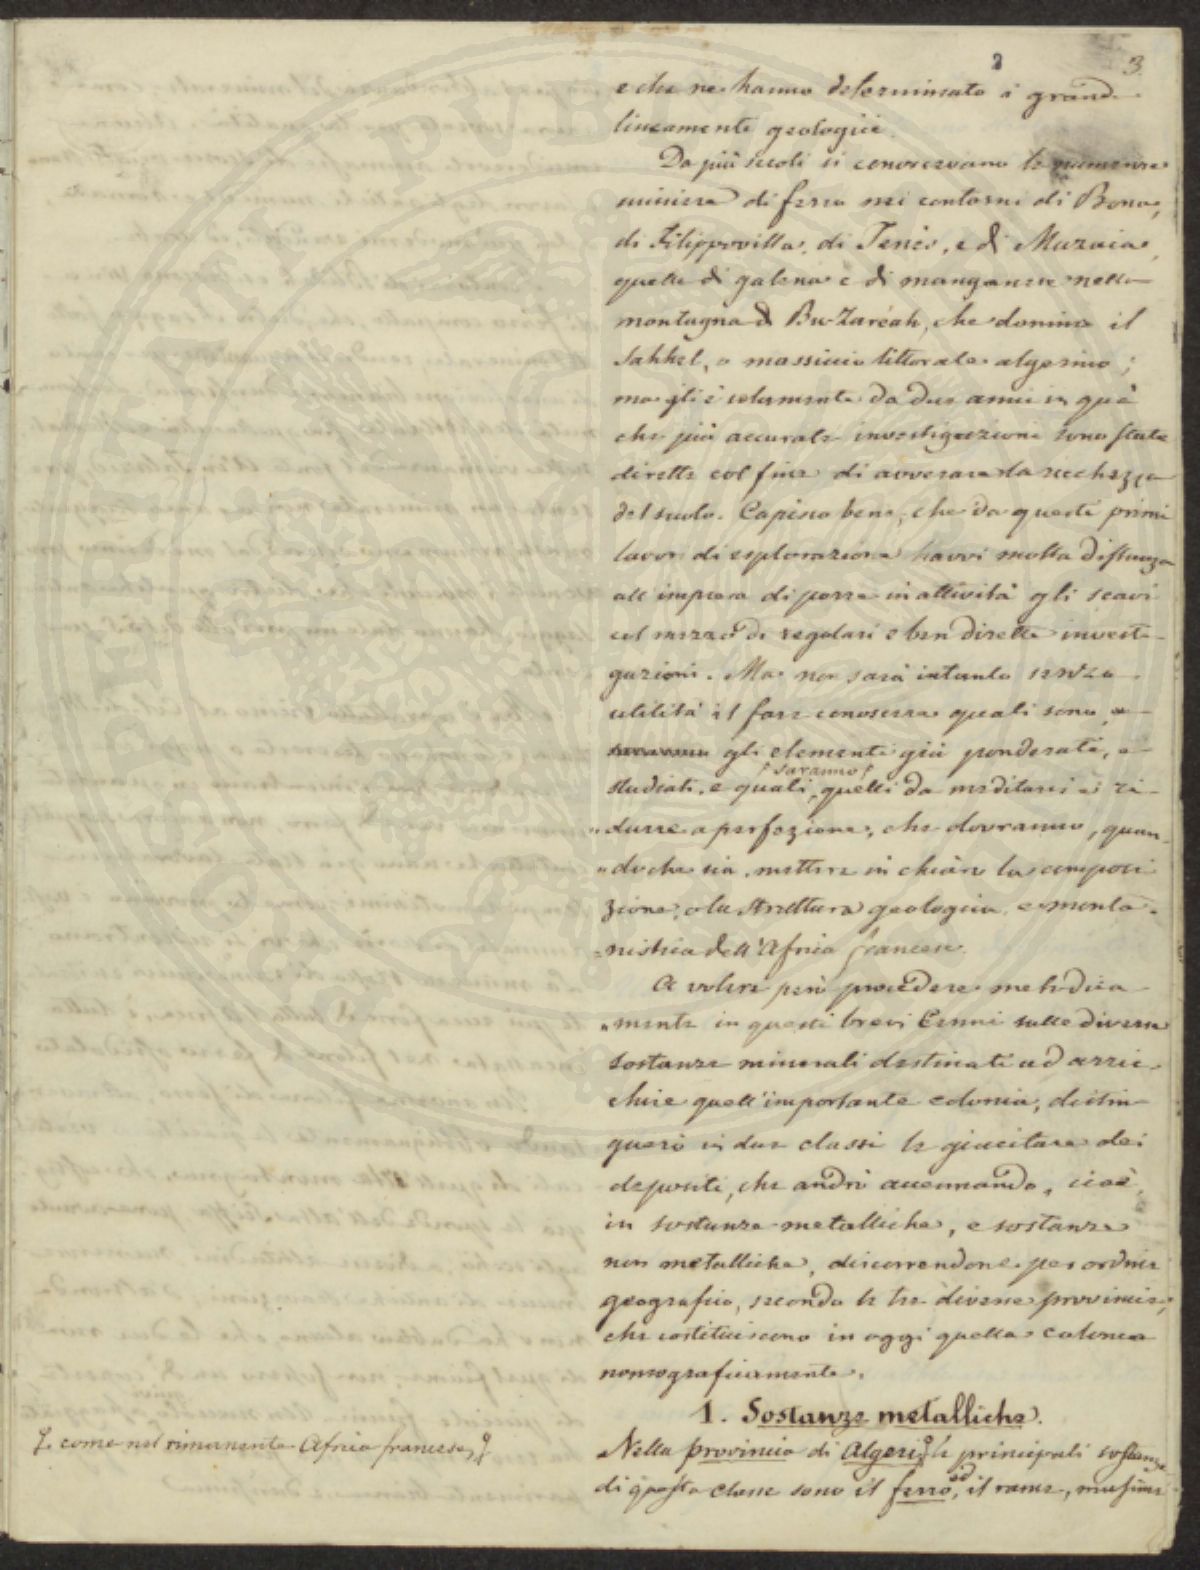 2 3
e che ne hanno determinato i grandi
lineamenti geologici.
Da più secoli si conoscevano le numerose
miniere di ferro nei contorni di Bona,
di Filippovilla, di Tenès, e di Muzaia,
quelle di galena e di manganese nella
montagna di Bu-Zaréah, che domina il
Sahhel, o massiccio littorale algerino;
ma gli è solamente da due anni in quà
che più accurate investigazioni sono state
dirette col fine di avverare la ricchezza
del suolo. Capisco bene, che da questi primi
lavori di esplorazione havvi molta distanza
all'impresa di porre in attività gli scavi
col mezzo di regolari e ben dirette investi-
gazioni. Ma non sarà intanto senza
utilità il fare conoscere quali sono
gli elementi già ponderati, e
studiati, e quali saranno quelli da meditarsi e ri-
durre a perfezione, che dovranno, quan-
doche sia, mettere in chiaro la composi-
zione, o la struttura geologica, e monta-
nistica dell'Africa francese.
A volere però procedere metodica-
mente in questi brevi Cenni sulle diverse
sostanze minerali destinati ad arric-
chire quell'importante colonia, distin-
guerò in due classi le giaciture dei
depositi, che andrò accennando, cioè,
in sostanze metalliche, e sostanze
non metalliche, discorrendone per ordine
geografico, secondo le tre diverse provincie,
che costituiscono in oggi quella colonia
nomograficamente.
1. Sostanze metalliche.
Nella provincia di Algeri, le principali sostanze
di questa classe sono il ferro, ed il rame, massime
come nel rimanente Africa francese,